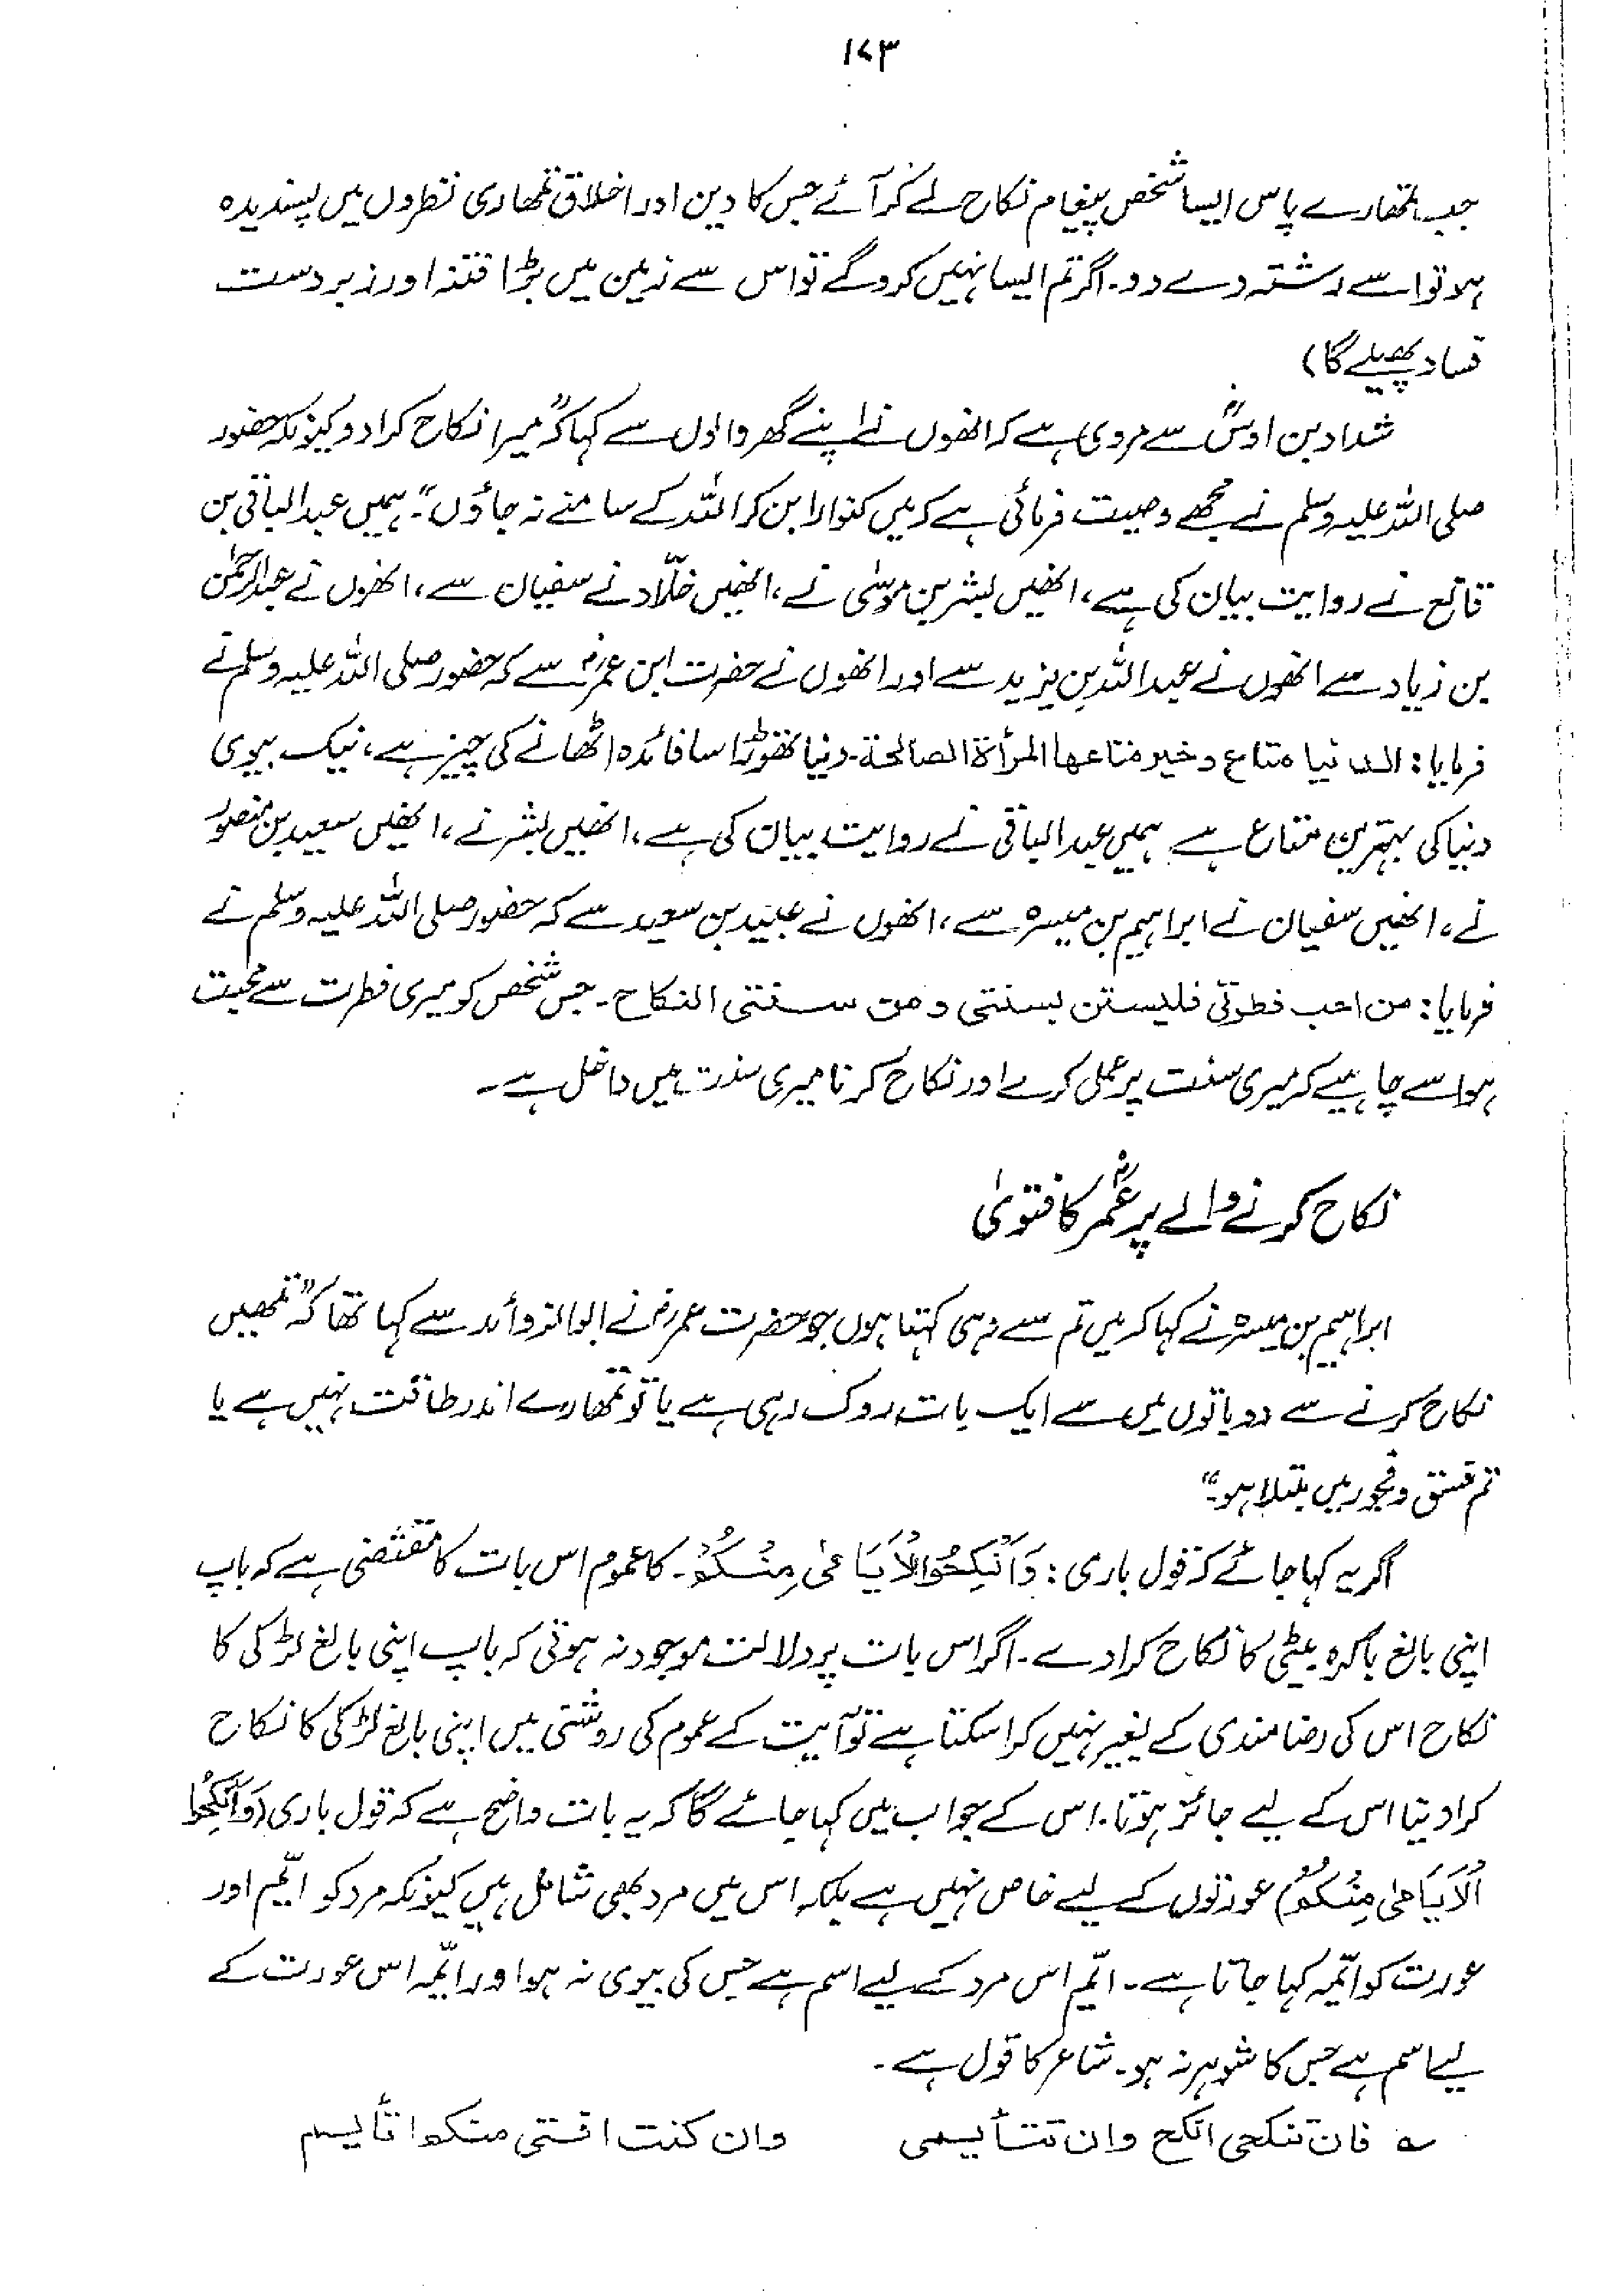 ۱۷۳
جب تمھارے پاس ایسا شخص پیغام نکاح لے کر آئے جس کا دین اور اخلاق تمھاری نظروں میں پسندیدہ
ہو تو اسے رشتہ دے دو۔ اگر تم ایسا نہیں کرو گے تو اس سے زمین میں بڑا فتنہ اور زبردست
فساد پھیلے گا)
شداد بن اوسؓ سے مروی ہے کہ انھوں نے اپنے گھر والوں سے کہا کہ "میرا نکاح کرا دو کیونکہ حضور
صلی اللہ علیہ وسلم نے مجھے وصیت فرمائی ہے کہ میں کنوارا بن کر اللہ کے سامنے نہ جاؤں"۔ ہمیں عبدالباقی بن
قانع نے روایت بیان کی ہے، انھیں بشر بن موسیٰ نے، انھیں خلّاد نے سفیان سے، انھوں نے عبدالرحمٰن
بن زیاد سے انھوں نے عبداللہ بن یزید سے اور انھوں نے حضرت ابن عمرؓ سے کہ حضور صلی اللہ علیہ وسلم نے
فرمایا: الدنیا متاع وخیر متاعها المرأة الصالحة۔ دنیا تھوڑا سا فائدہ اٹھانے کی چیز ہے، نیک بیوی
دنیا کی بہترین متاع ہے ہمیں عبدالباقی نے روایت بیان کی ہے، انھیں بشر نے، انھیں سعید بن منصور
نے، انھیں سفیان نے ابراہیم بن میسرہ سے، انھوں نے عبید بن سعید سے کہ حضور صلی اللہ علیہ وسلم نے
فرمایا: من احب فطرتی فلیستن بسنتی ومن سنتی النکاح۔ جس شخص کو میری فطرت سے محبت
ہو اسے چاہیے کہ میری سنت پر عمل کرے اور نکاح کرنا میری سنت میں داخل ہے۔
نکاح کرنے والے پر عمرؓ کا فتویٰ
ابراہیم بن میسرہ نے کہا کہ میں تم سے وہی کہتا ہوں جو حضرت عمرؓ نے ابوالزوائد سے کہا تھا کہ "تمھیں
نکاح کرنے سے دو باتوں میں سے ایک بات روک رہی ہے یا تو تمھارے اندر طاقت نہیں ہے یا
تم فسق و فجور میں مبتلا ہو"۔
اگر یہ کہا جائے کہ قول باری: وَاَنْکِحُوا الْاَیَامٰی مِنْکُمْ۔ کا عموم اس بات کا مقتضی ہے کہ باپ
اپنی بالغ باکرہ بیٹی کا نکاح کرا دے۔ اگر اس بات پر دلالت موجود نہ ہوتی کہ باپ اپنی بالغ لڑکی کا
نکاح اس کی رضامندی کے بغیر نہیں کرا سکتا ہے تو آیت کے عموم کی روشنی میں اپنی بالغ لڑکی کا نکاح
کرا دینا اس کے لیے جائز ہوتا۔ اس کے جواب میں کہا جائے گا کہ یہ بات واضح ہے کہ قول باری (وَاَنْکِحُوا
الْاَیَامٰی مِنْکُمْ) عورتوں کے لیے خاص نہیں ہے بلکہ اس میں مرد بھی شامل ہیں کیونکہ مرد کو ایّم اور
عورت کو ایّمہ کہا جاتا ہے۔ ایّم اس مرد کے لیے اسم ہے جس کی بیوی نہ ہو اور ایّمہ اس عورت کے
لیے اسم ہے جس کا شوہر نہ ہو۔ شاعر کا قول ہے۔
؎ فان تنکحی انکح وان تتأیمی وان کنت افتی منکم اتأیم